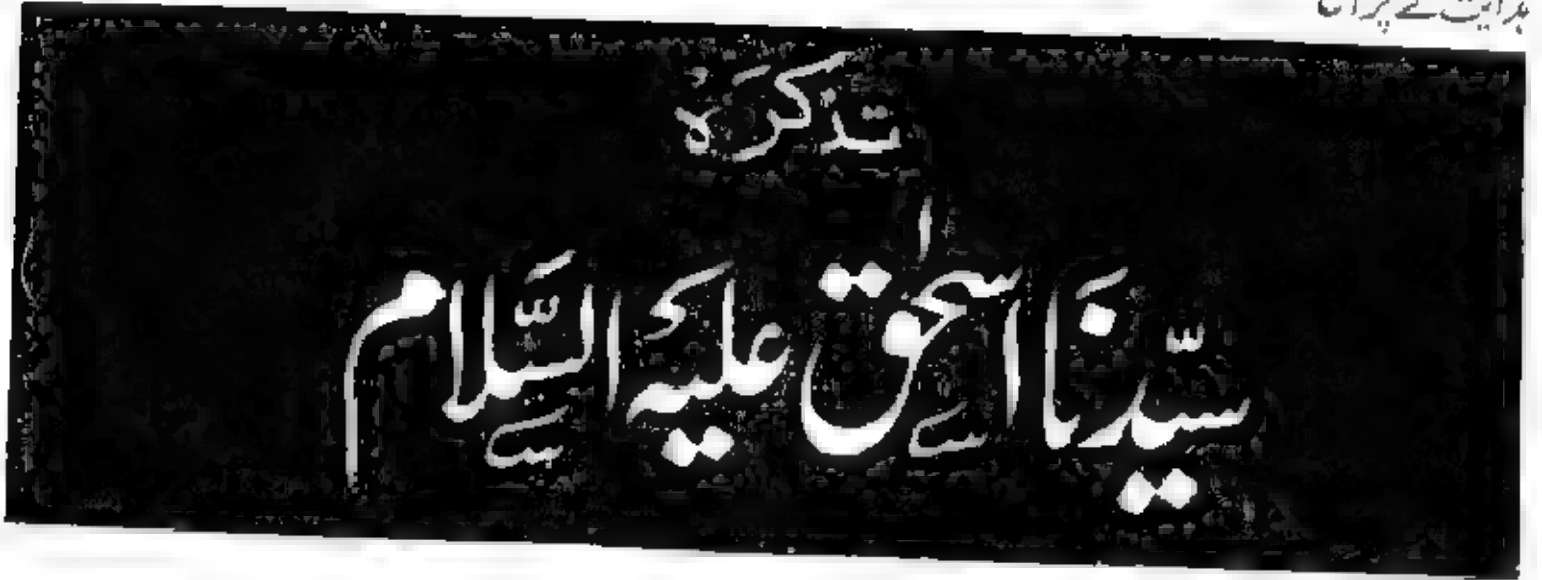 ہدایت کے چراغ
تذکرہ
سیّدنا اسحٰق علیہ السّلام